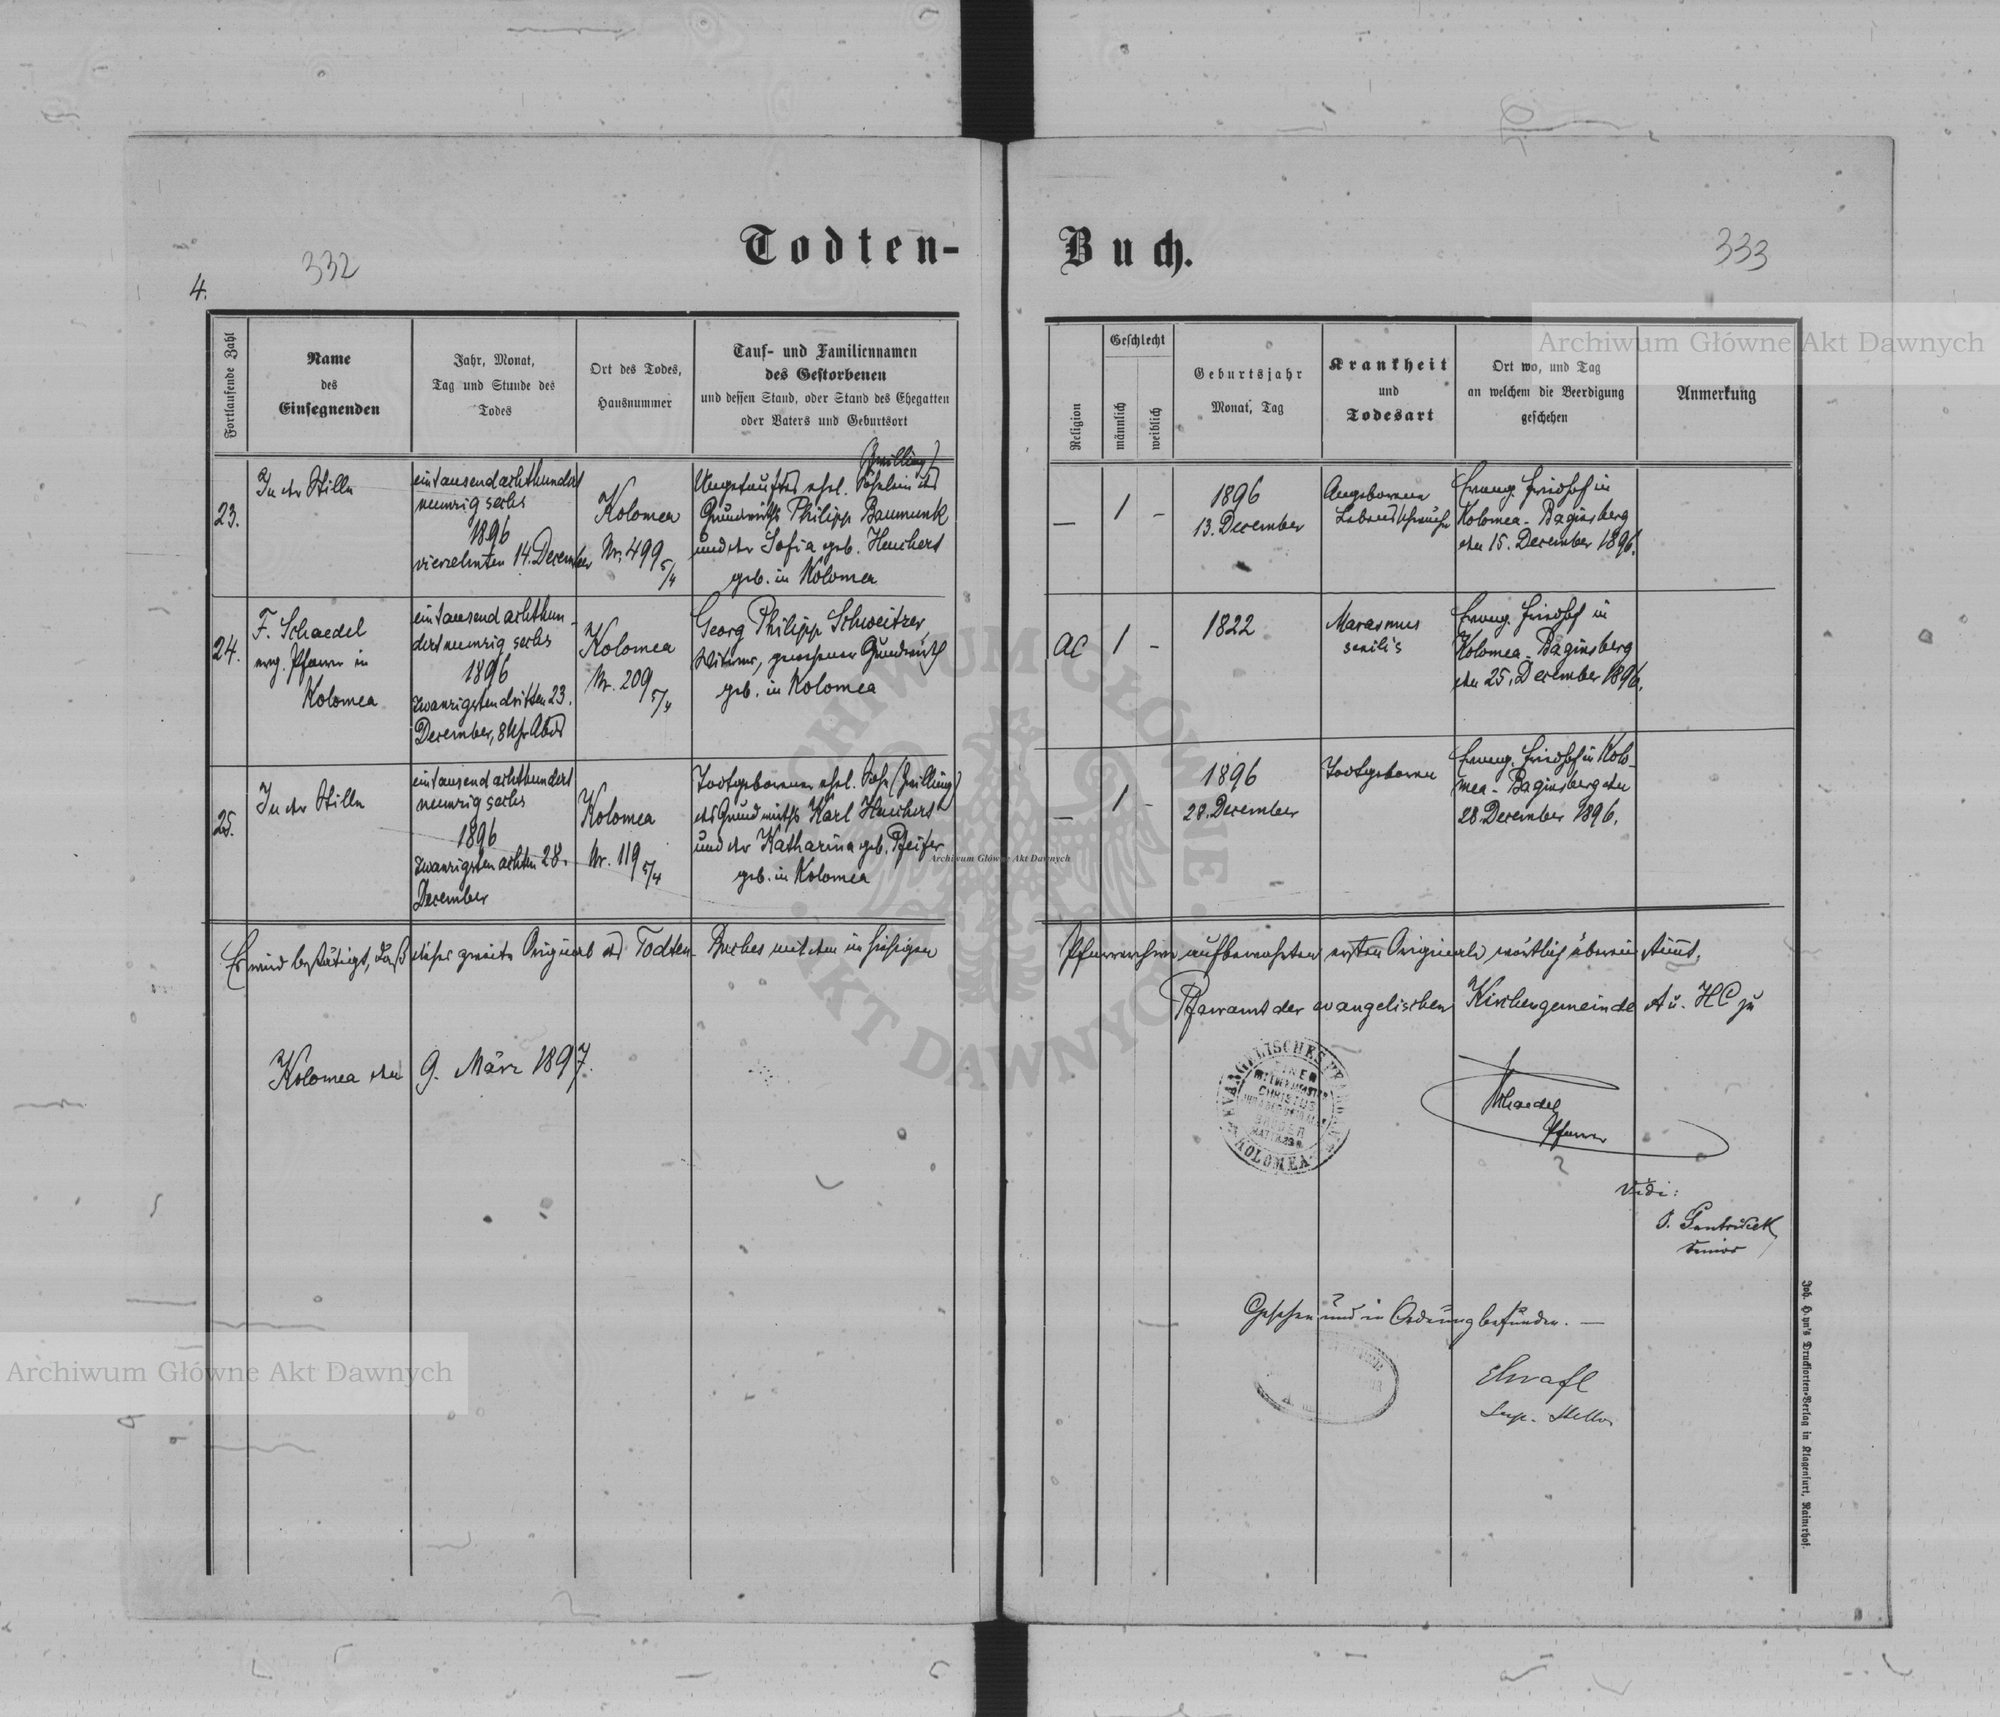 Todten-
Buch.
332
333
4.
Archiwum Główne Akt Dawnych
Fortlaufende Zahl
Name
des
Einsegnenden
Jahr, Monat,
Tag und Stunde des
Todes
Ort des Todes,
Hausnummer
Tauf- und Familiennamen
des Gestorbenen
und dessen Stand, oder Stand des Ehegatten
oder Vaters und Geburtsort
Religion
Geschlecht
männlich
weiblich
Geburtsjahr
Monat, Tag
Krankheit
und
Todesart
Ort wo, und Tag
an welchem die Beerdigung
geschehen
Anmerkung
23.
In der Stille
eintausendachthundert
neunzig sechs
1896
vierzehnten 14. December
Kolomea
Nr. 499 5/4
(Zwilling)
Ungetauftes ehel. Söhnlein des
Grundwirths Philipp Baumunk
und der Sofia geb. Heuchert
geb. in Kolomea
—
1
–
1896
13. December
Angeborene
Lebensschwäche
Evang. Friedhof in
Kolomea - Baginsberg
den 15. December 1896.
24.
F. Schaedel
evg. Pfarrer in
Kolomea
eintausend achthun-
dert neunzig sechs
1896
zwanzigsten dritten 23.
December, 8 Uhr Abds
Kolomea
Nr. 209 5/4
Georg Philipp Schweitzer,
Witwer, gewesener Grundwirth
geb. in Kolomea
AC
1
–
1822
Marasmus
senilis
Evang. Friedhof in
Kolomea - Baginsberg
den 25. December 1896.
25.
In der Stille
eintausend achthundert
neunzig sechs
1896
zwanzigsten achten 28.
December
Kolomea
Nr. 119 5/4
Todtgeborener ehel. Sohn (Zwilling)
des Grundwirths Karl Heuchert
und der Katharina geb. Pfeifer
geb. in Kolomea
—
1
–
1896
28. December
Todtgeboren
Evang. Friedhof in Kolo-
mea - Baginsberg den
28 December 1896.
Es wird bestätigt, daß dieses zweite Original des Todten-Buches mit dem im hiesigen
Pfarrarchive aufbewahrten ersten Originale wörtlich überein stimmt.
Pfarramt der evangelischen Kirchengemeinde A u. HC zu
Kolomea den 9. März 1897.
EVANGELISCHES PFARRAMT
EINER
CHRISTUS
BRÜDER
KOLOMEA
Schaedel
Pfarrer
Vidi:
Senior
Gesehen und in Ordnung befunden. —
Sup. Stellv.
Joh. Heyn's Drucksorten-Verlag in Klagenfurt, Rainerhof.
ARCHIWUM GŁÓWNE
AKT DAWNYCH
Archiwum Główne Akt Dawnych
Archiwum Główne Akt Dawnych